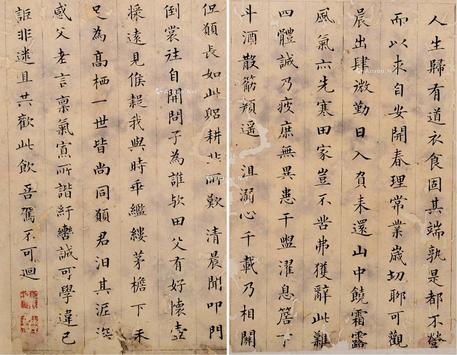 人生歸有道衣食固其端孰是都不營
而以求自安開春理常業歲功聊可觀
晨出肆微勤日入負耒還山中饒霜露
風氣亦先寒田家豈不苦弗獲辭此難
四體誠乃疲庶無異患干盥濯息簷下
斗酒散筋顏遥沮溺心千載乃相關
但願長如此躬耕非所歎清晨聞叩門
倒裳往自開問子為誰歟田父有好懷壺
漿遠見候疑我與時乖繿縷茅檐下未
足為高栖一世皆尚同願君汨其泥深
感父老言稟氣寡所諧紆轡誠可學違己
詎非迷且共歡此飲吾駕不可迴